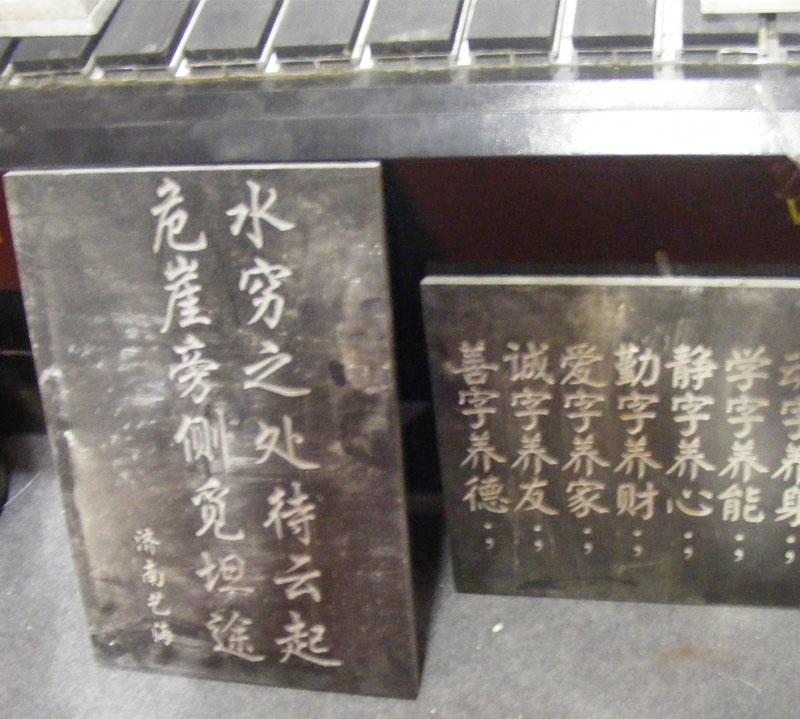 水穷之处待云起
危崖旁侧觅坦途
济南艺海
动字养身；
学字养能；
静字养心；
勤字养财；
爱字养家；
诚字养友；
善字养德；